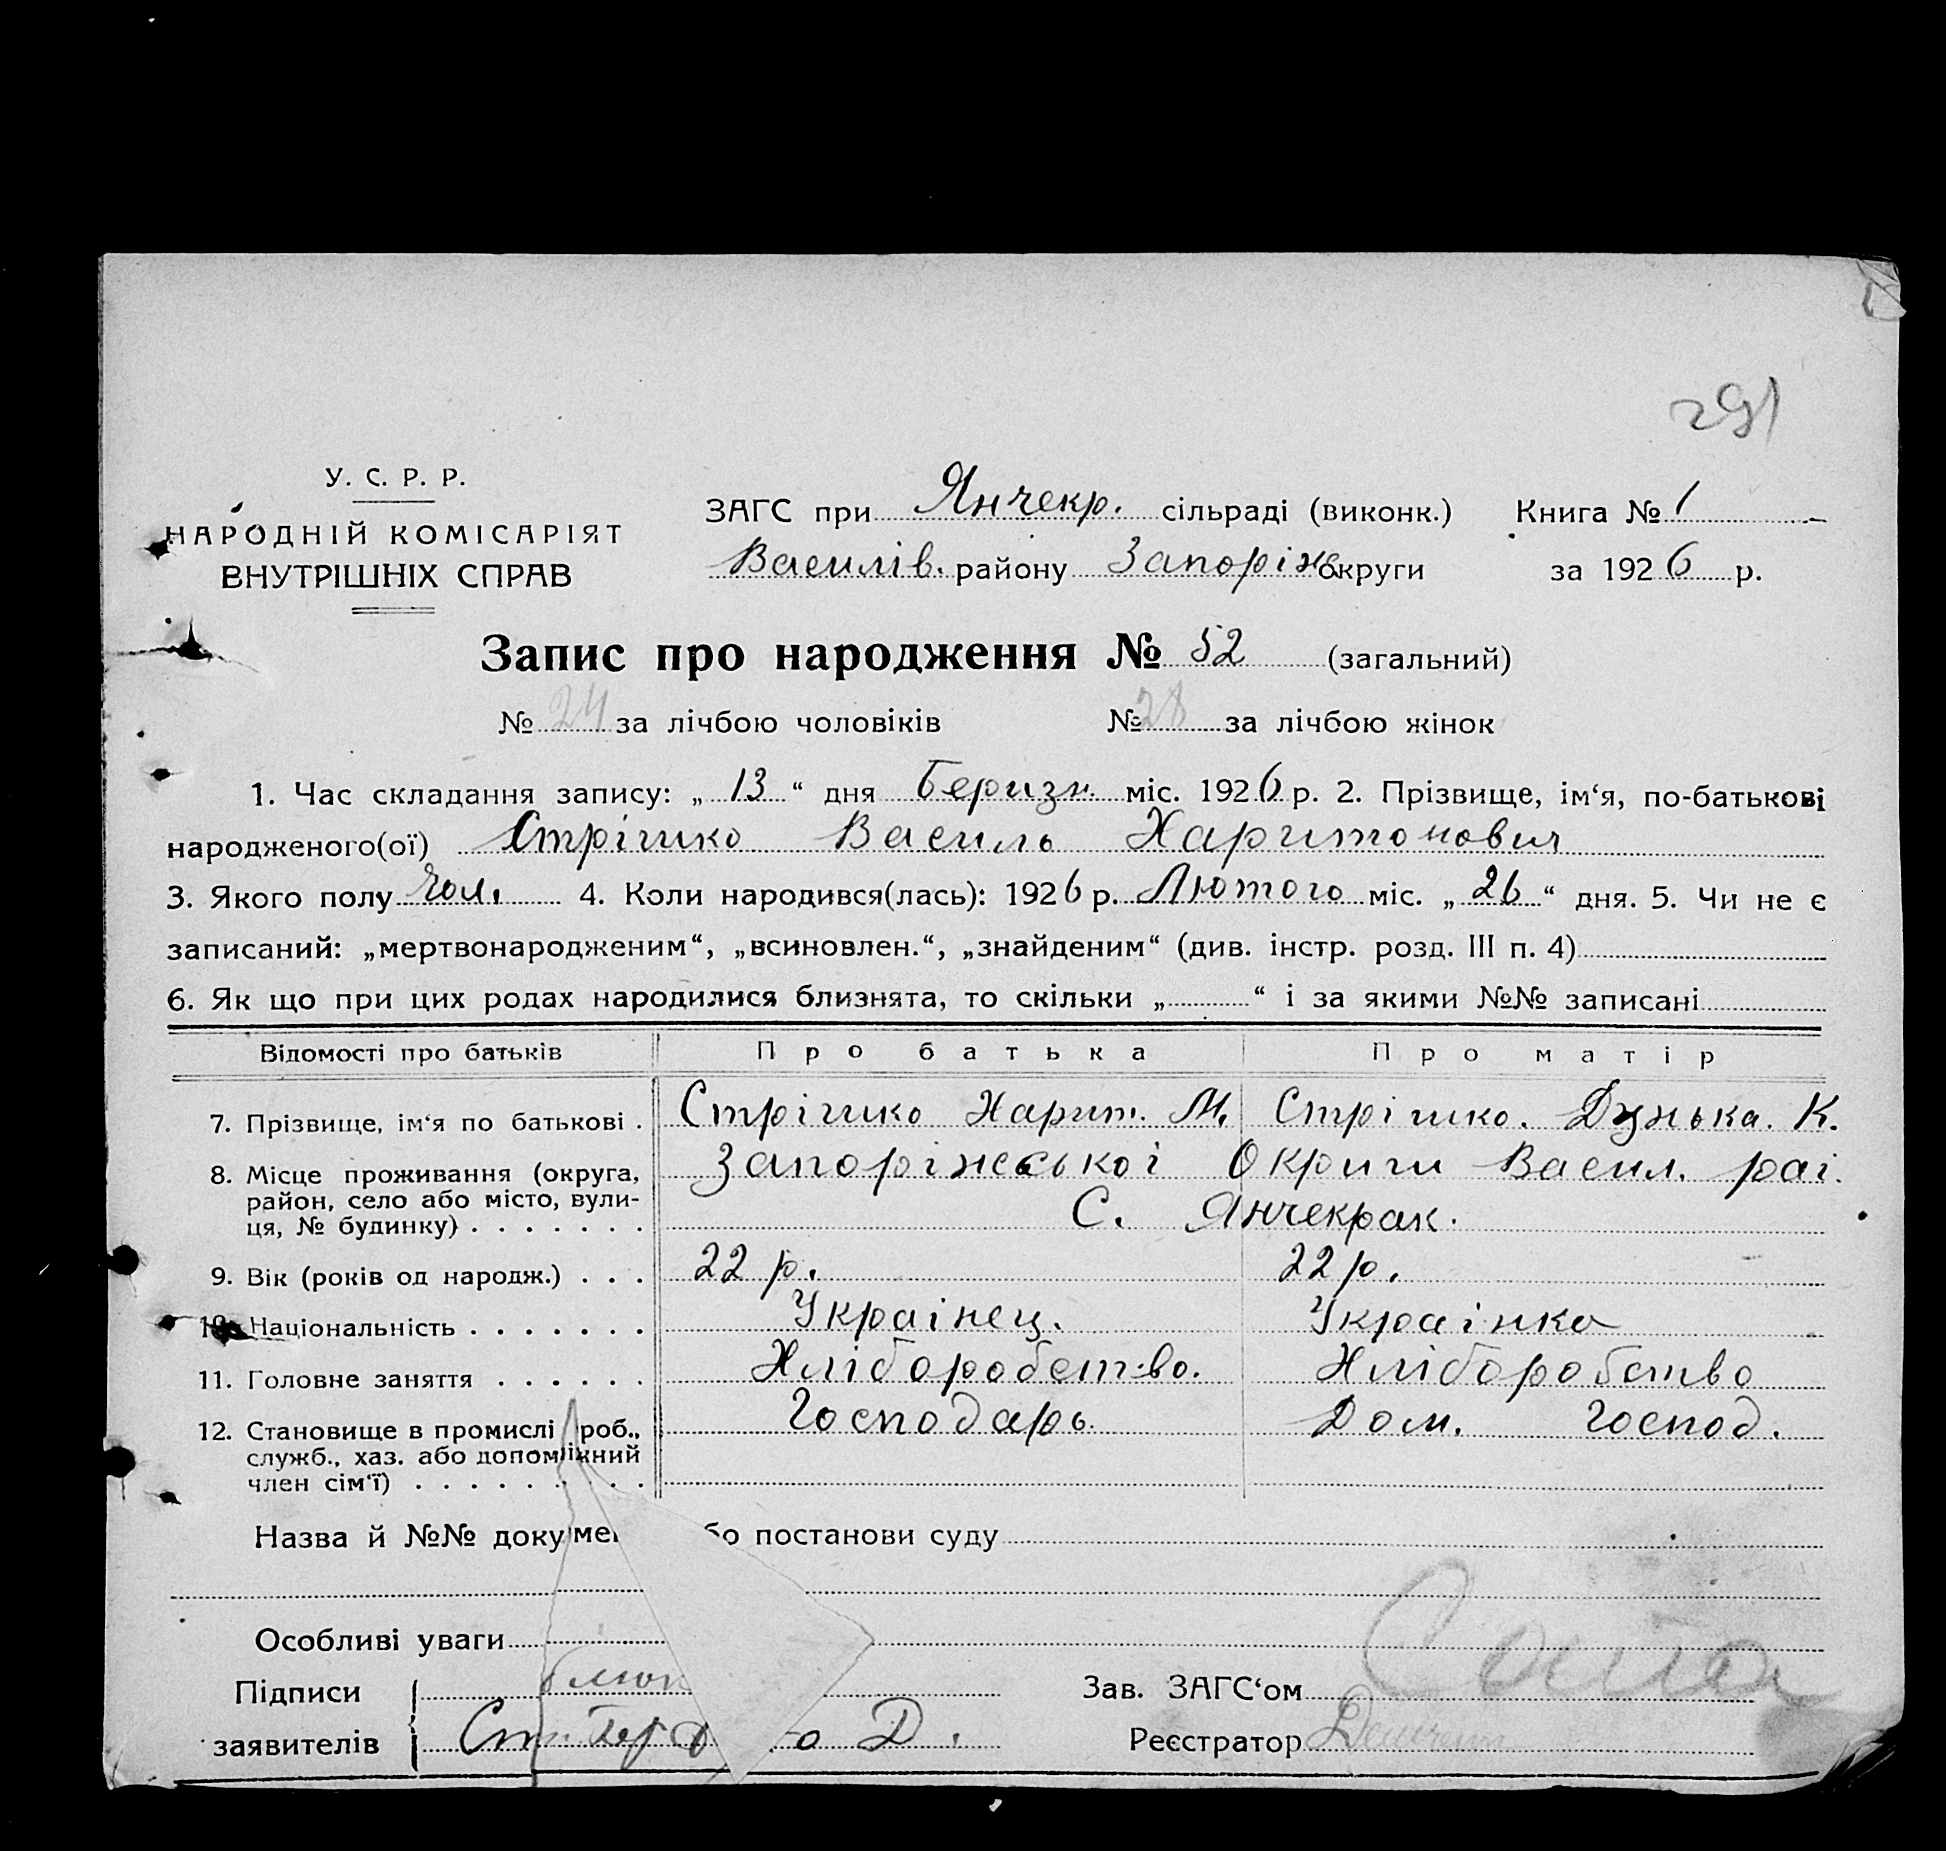 291
У. С. Р. Р.
НАРОДНІЙ КОМІСАРІЯТ
ВНУТРІШНІХ СПРАВ
ЗАГС при Янчекр. сільраді (виконк.) Книга № 1
Василів. району Запоріж. округи за 1926 р.
Запис про народження № 52 (загальний)
№ 24 за лічбою чоловіків № 28 за лічбою жінок
1. Час складання запису: „ 13 “ дня Беризн. міс. 1926 р. 2. Прізвище, ім‘я, по-батькові
народженого(ої) Стрішко Василь Харитонович
3. Якого полу Чол. 4. Коли народився(лась): 1926 р. Лютого міс. „ 26 “ дня. 5. Чи не є
записаний: „мертвонародженим“, „всиновлен.“, „знайденим“ (див. інстр. розд. III п. 4)
6. Як що при цих родах народилися близнята, то скільки „ “ і за якими №№ записані
Відомості про батьків Про батька Про матір
7. Прізвище, ім‘я по батькові . Стрішко Харит. М. Стрішко. Дунька. К.
8. Місце проживання (округа, Запоріжської Округи Васил. раі.
район, село або місто, вули-
ця, № будинку) . . . . . . . С. Янчекрак.
9. Вік (років од народж.) . . . 22 р. 22 р.
10. Національність . . . . . . . Украінец. Украінка
11. Головне заняття . . . . . . Хліборобство. Хліборобство
12. Становище в промислі роб., Господарь. Дом. Господ.
служб., хаз. або допоміжний
член сім‘ї) . . . . . . . .
Назва й №№ докумен бо постанови суду
Особливі уваги
Підписи
заявителів о Д.
Зав. ЗАГС‘ом
Реєстратор